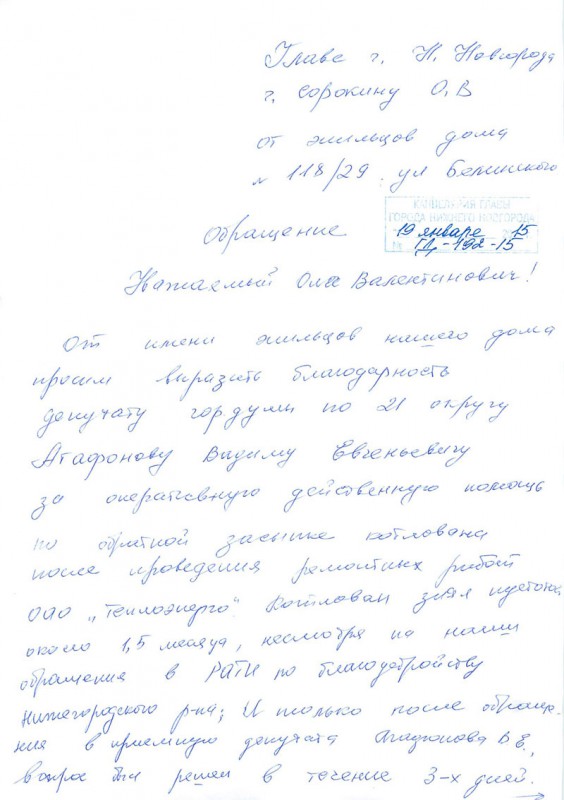 Главе г. Н. Новгорода
г. Сорокину О, В
от жильцов дома
№ 118/29. ул Белинского
КАНЦЕЛЯРИЯ ГЛАВЫ
ГОРОДА НИЖНЕГО НОВГОРОДА
19 января 15
№ ГД-192-15
Обращение
Уважаемый Олег Валентинович!
От имени жильцов нашего дома
просим выразить благодарность
депутату гор. думы по 21 округу
Агафонову Вадиму Евгеньевичу
за оперативную действенную помощь
по обратной засыпке котлована
после проведения ремонтных работ
ОАО „Теплоэнерго". Котлован
около 1,5 месяца, несмотря на наши
обращения в РАТИ по благоустройству
Нижегородского р-на; И только после обраще-
ния в приемную депутата Агафонова В Е.,
вопрос был решен в течение 3-х дней.